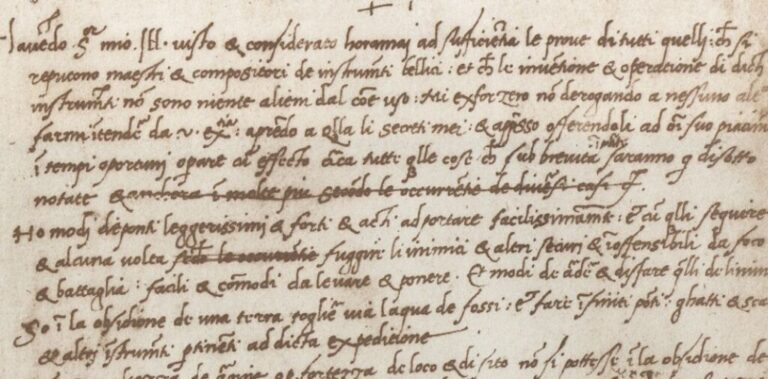 Havēdo Sr mio Ill. visto & considerato horamai ad sufficientia le prove di tutti quelli che si
reputono maestri & compositori de instrumti bellici: et che le invētione & operatione di dicti
instrumti nō sono niente alieni dal cōe uso: mi exforzero nō derogando a nessuno altro
farmi intēder da v. extia: aprēdo a qlla li secreti mei: & appsso offerendoli ad oi suo piacimto
ī tempi oportuni operare cū effecto circa tutte qlle cose che sub brevita ī parte saranno q disotto
notate & anchora ī molte piu secōdo le occurrentie de diversi casi &c.
Ho modi de ponti leggerissimi & forti & acti ad portare facilissimamte: et cū qlli seguire
& alcuna volta secōdo le occurrentie fuggire li inimici & altri securi & inoffensibili da foco
& battaglia: facili & cōmodi da levare & ponere. Et modi de arder & disfare qlli de linimici
So ī la obsidione de una terra toglier via laqua de fossi: et fare īfiniti pōti ghatti & scale
& altri īstrumti ptinenti ad dicta expeditione